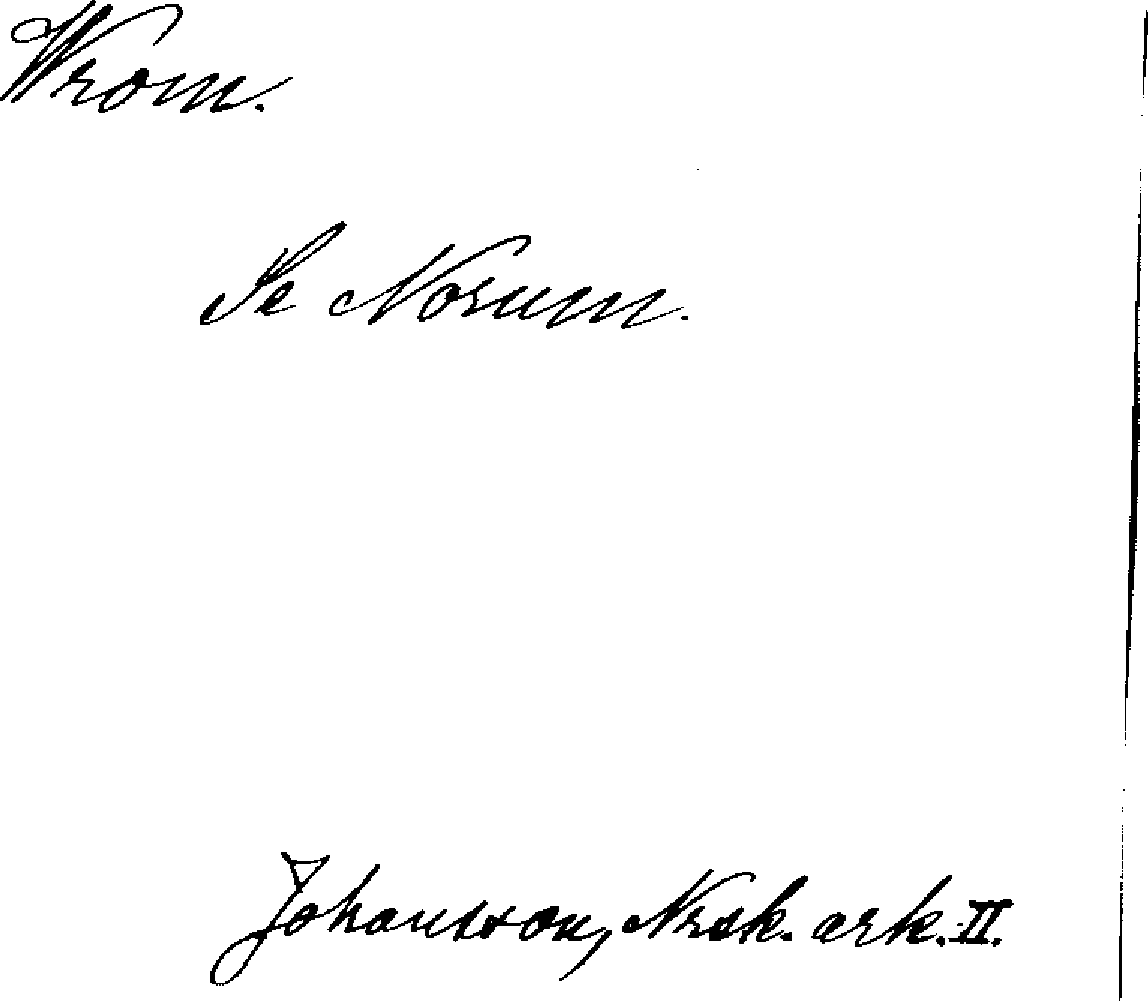 Wrom.
Se Norum.
Johansson, Nrsk. ark. II.